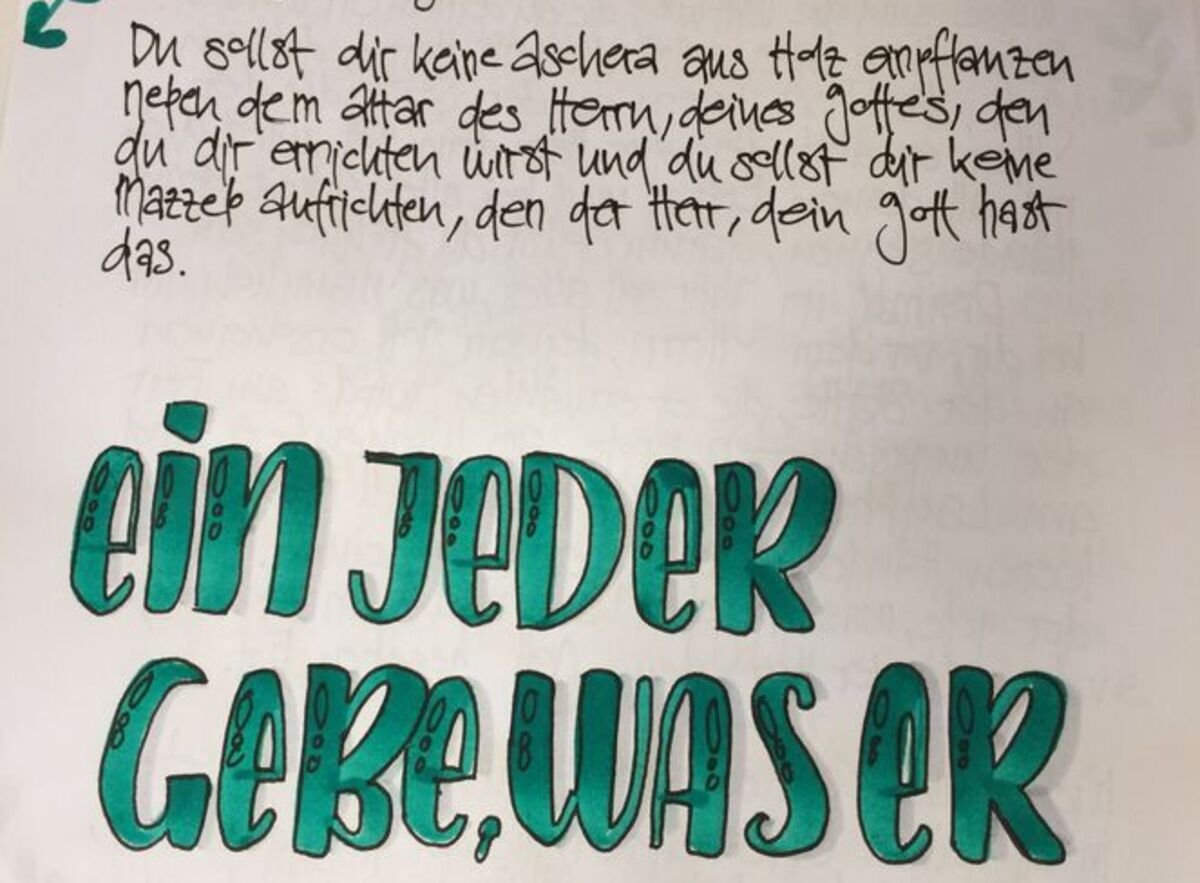 Du sollst dir keine Aschera aus Holz einpflanzen
neben dem Altar des Herrn, deines Gottes, den
du dir errichten wirst und du sollst dir keine
Mazzeb aufrichten, den der Herr, dein Gott hast
das.
EIN JEDER
GEBE, WAS ER